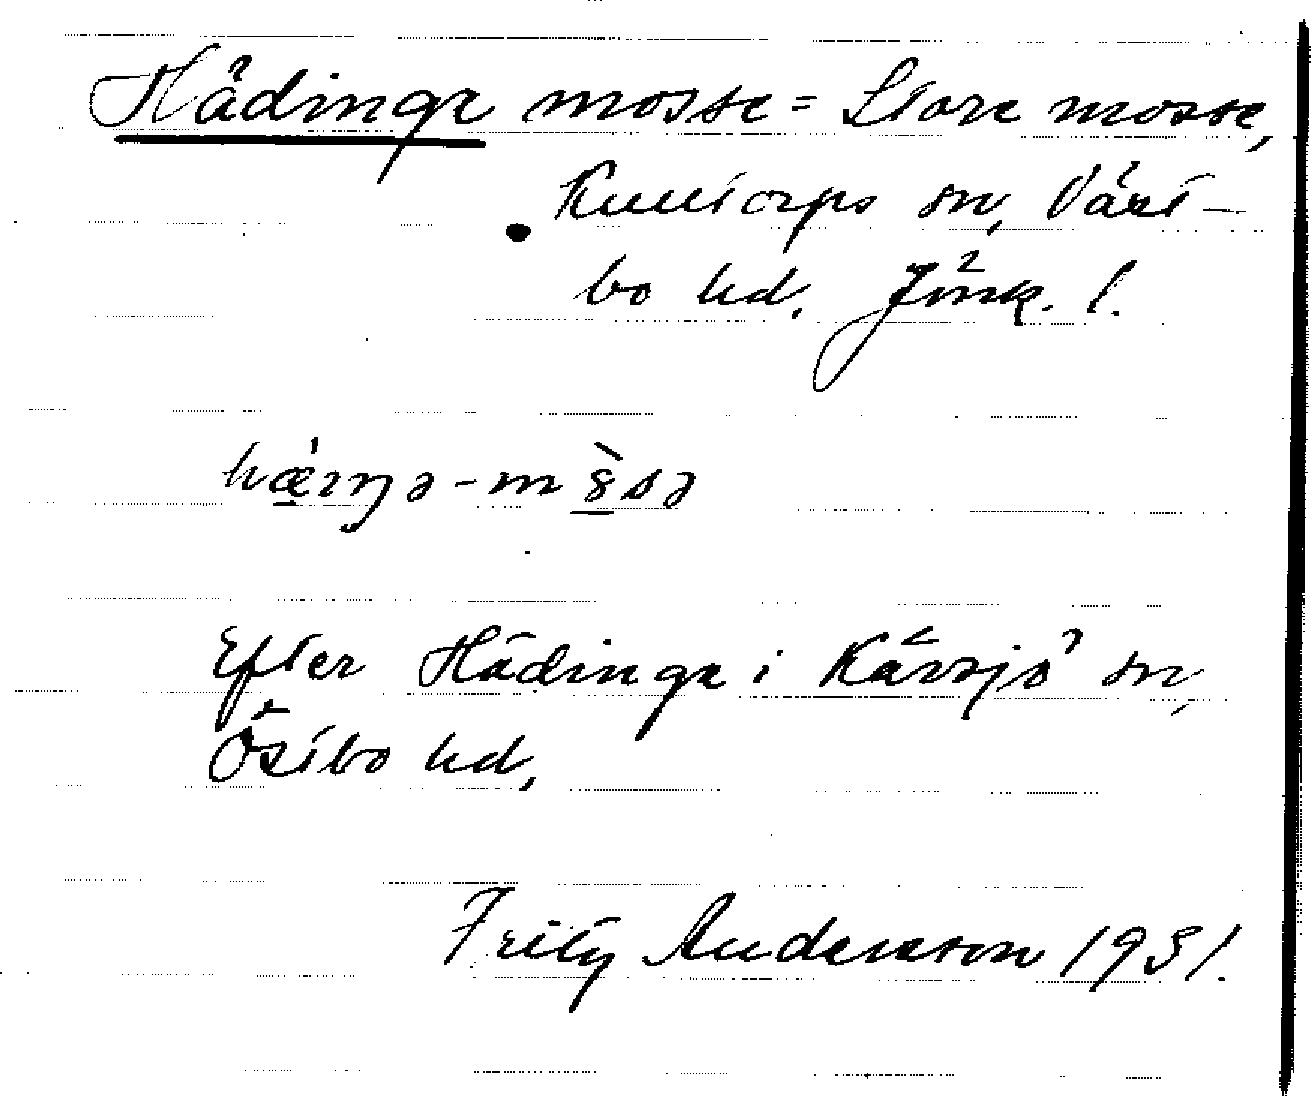 Hädinge mosse = Store mosse,
Kulltorps sn, Väst-
bo hd. Jönk. l.
Efter Hädinge i Kävsjö sn,
Östbo hd,
Fritz Andersson 1931.